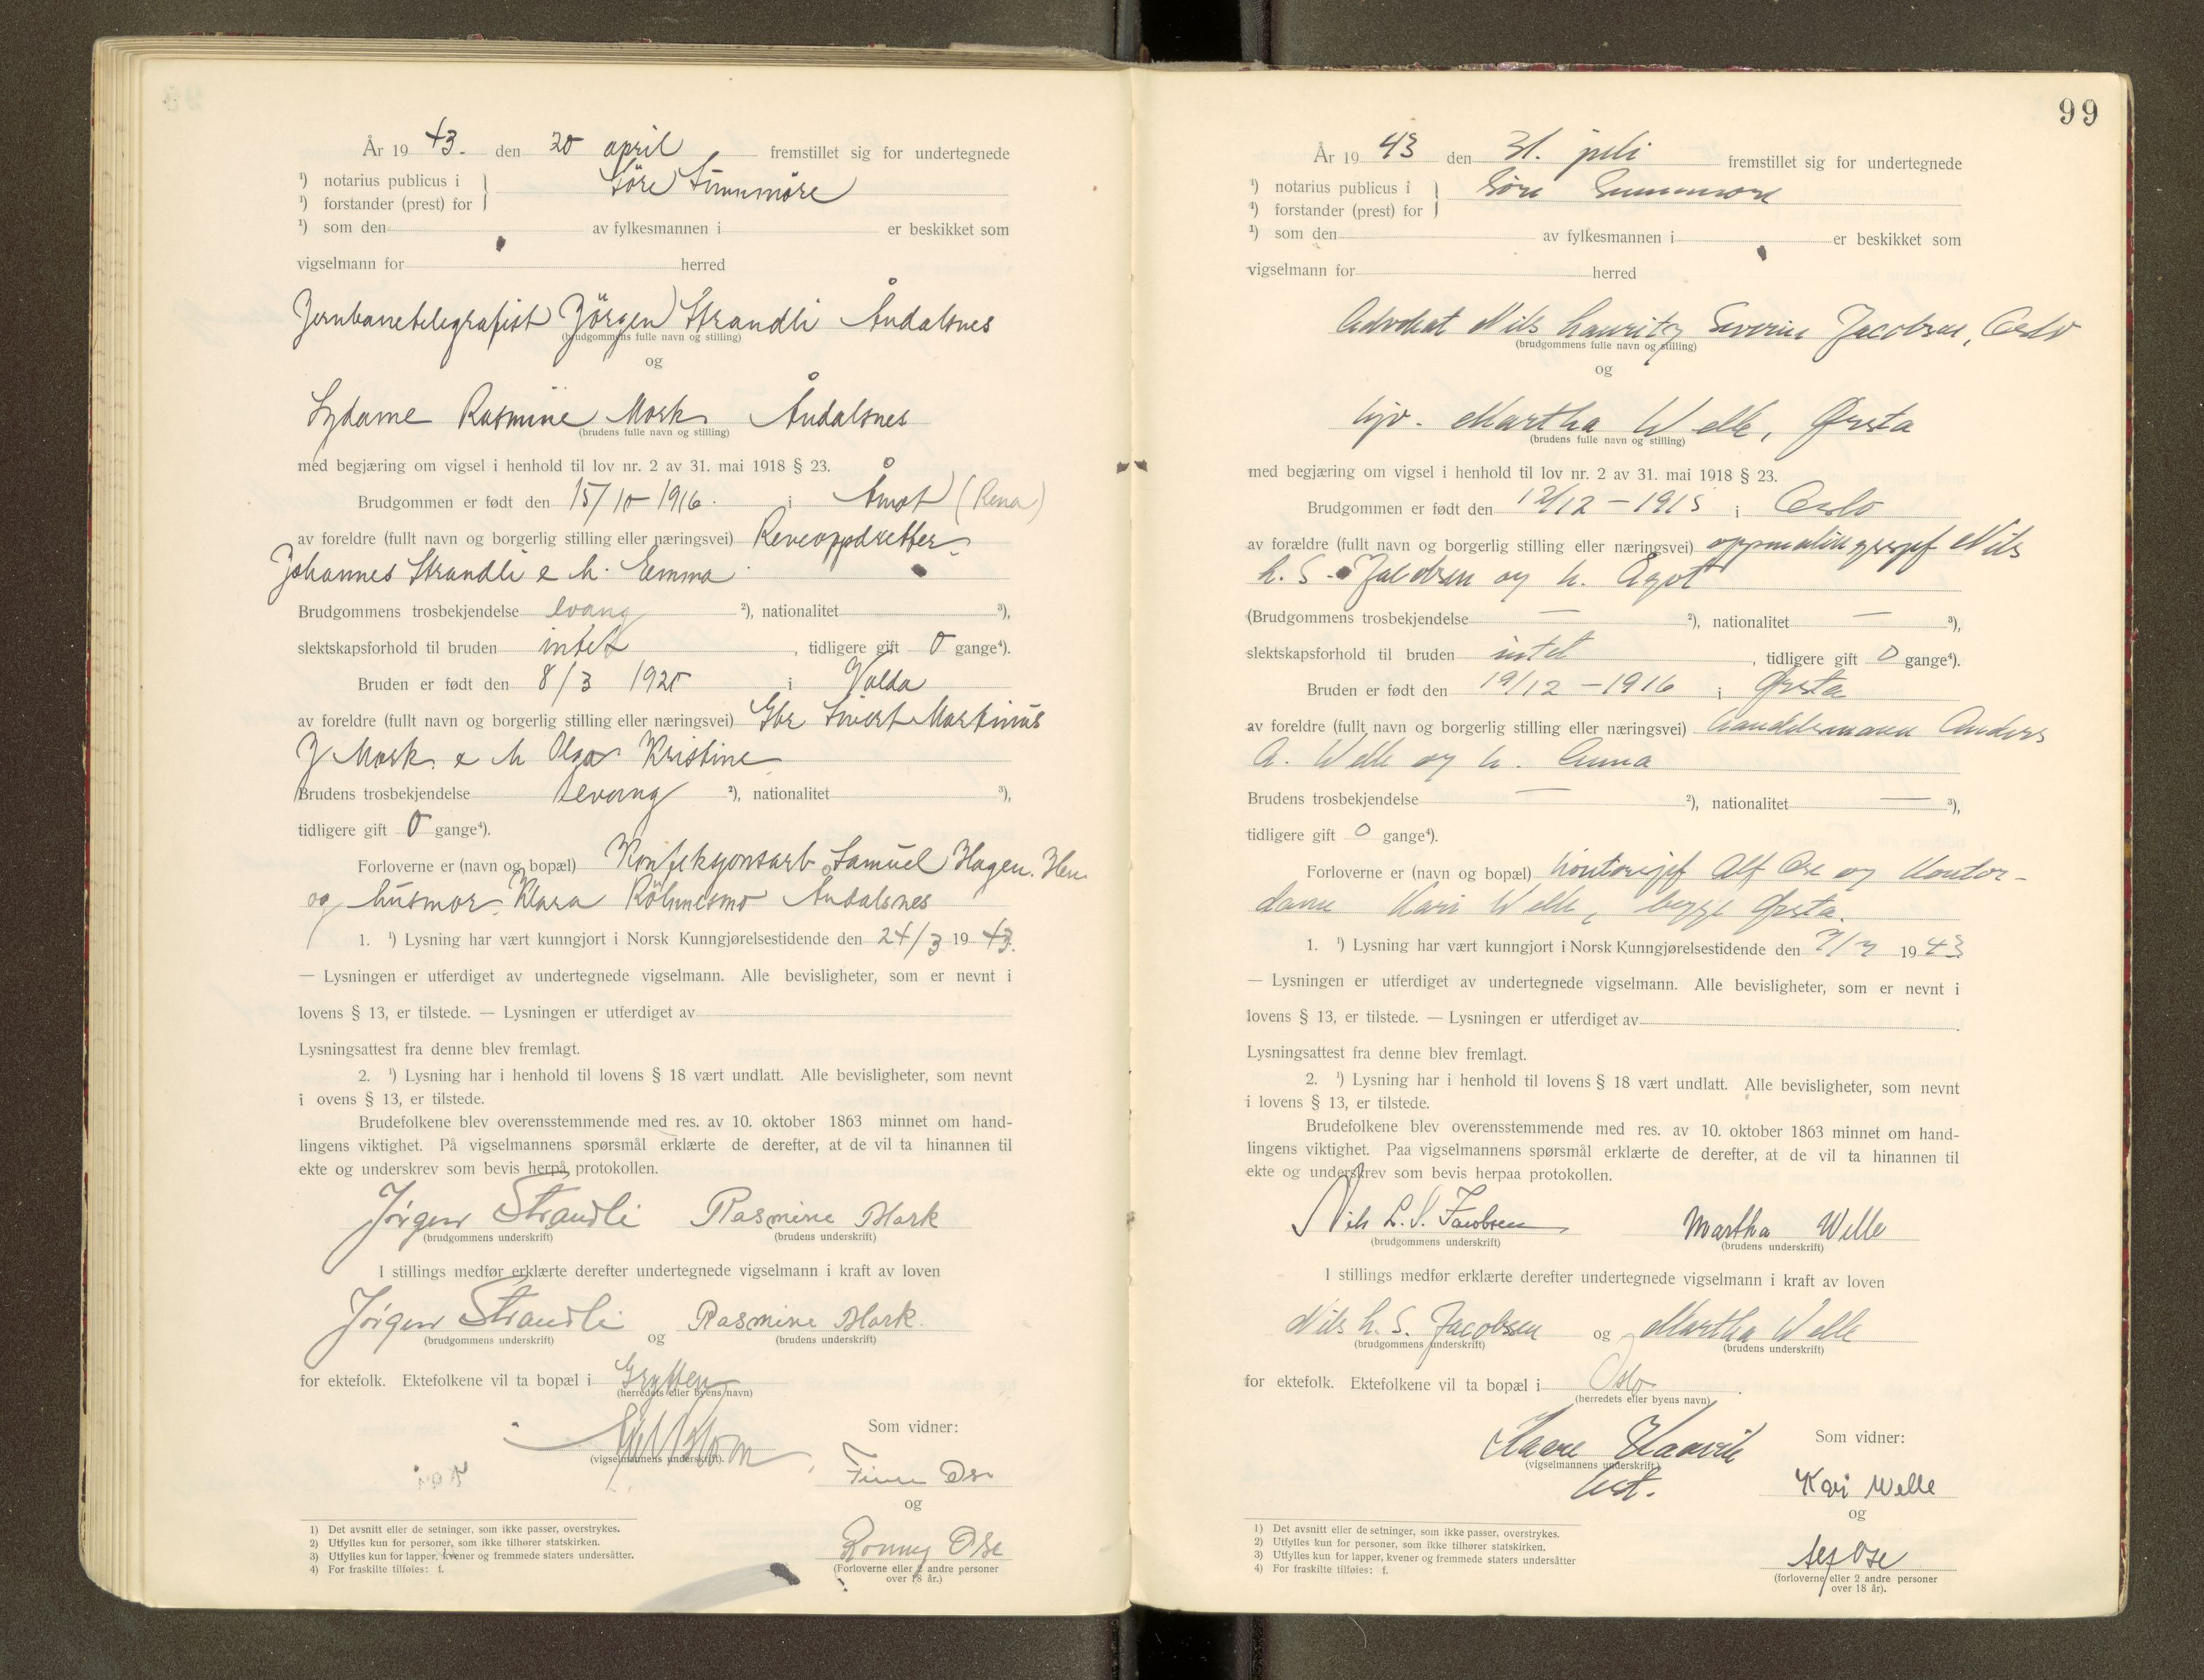 År 19 43. den 20 april fremstillet sig for undertegnede
¹) notarius publicus i
Söre Sunnmöre
¹) forstander (prest) for
¹) som den av fylkesmannen i er beskikket som
vigselmann for herred
Jernbanetelegrafist Jörgen Strandli Åndalsnes
(brudgommens fulle navn og stilling)
og
Sydame Rasmine Mork Åndalsnes
(brudens fulle navn og stilling)
med begjæring om vigsel i henhold til lov nr. 2 av 31. mai 1918 § 23.
Brudgommen er født den 15/10-1916. i Åmot (Rena)
av foreldre (fullt navn og borgerlig stilling eller næringsvei) Reveoppdretter
Johannes Strandli e h. Emma
Brudgommens trosbekjendelse evang ²), nationalitet ³),
slektskapsforhold til bruden intet, tidligere gift 0 gange⁴).
Bruden er født den 8/3 1920 i Volda
av foreldre (fullt navn og borgerlig stilling eller næringsvei) Gbr Sivert Martinus
J Mork e h Olga Kristine
Brudens trosbekjendelse evang ²), nationalitet ³),
tidligere gift 0 gange⁴).
Forloverne er (navn og bopæl) Konfeksjonsarb Samuel Hagen. Hen
og husmor Klara Åndalsnes
1. ¹) Lysning har vært kunngjort i Norsk Kunngjørelsestidende den 24/3 19 43.
— Lysningen er utferdiget av undertegnede vigselmann. Alle bevisligheter, som er nevnt i
lovens § 13, er tilstede. — Lysningen er utferdiget av
Lysningsattest fra denne blev fremlagt.
2. ¹) Lysning har i henhold til lovens § 18 vært undlatt. Alle bevisligheter, som nevnt
i ovens § 13, er tilstede.
Brudefolkene blev overensstemmende med res. av 10. oktober 1863 minnet om hand-
lingens viktighet. På vigselmannens spørsmål erklærte de derefter, at de vil ta hinannen til
ekte og underskrev som bevis herpå protokollen.
Jörgen Strandli Rasmine Mork
(brudgommens underskrift) (brudens underskrift)
I stillings medfør erklærte derefter undertegnede vigselmann i kraft av loven
Jörgen Strandli og Rasmine Mork.
(brudgommens underskrift) (brudens underskrift)
for ektefolk. Ektefolkene vil ta bopæl i Grytten
(herredets eller byens navn)
Som vidner:
(vigselmannens underskrift).
Finn Ose
og
Ronny Ose
(Forloverne eller 2 andre personer
over 18 år.)
1) Det avsnitt eller de setninger, som ikke passer, overstrykes.
2) Utfylles kun for personer, som ikke tilhører statskirken.
3) Utfylles kun for lapper, kvener og fremmede staters undersåtter.
4) For fraskilte tilføies: f.
99
År 19 43 den 31. juli fremstillet sig for undertegnede
¹) notarius publicus i
Söre Sunnmøre
¹) forstander (prest) for
¹) som den av fylkesmannen i er beskikket som
vigselmann for herred
Advokat Nils Lauritz Severin Jacobsen, Oslo
(brudgommens fulle navn og stilling)
og
Martha Welle, Ørsta
(brudens fulle navn og stilling)
med begjæring om vigsel i henhold til lov nr. 2 av 31. mai 1918 § 23.
Brudgommen er født den 12/12-1915 i Oslo
av forældre (fullt navn og borgerlig stilling eller næringsvei) oppmålingssjef Nils
L. S. Jacobsen og h. Agot
(Brudgommens trosbekjendelse — ²), nationalitet — ³),
slektskapsforhold til bruden intet, tidligere gift 0 gange⁴).
Bruden er født den 19/12-1916 i Ørsta
av foreldre (fullt navn og borgerlig stilling eller næringsvei) handelsmann Anders
A. Welle og h. Anna
Brudens trosbekjendelse — ²), nationalitet — ³),
tidligere gift 0 gange⁴).
Forloverne er (navn og bopæl) kontorsjef Alf Ose og kontor-
dame Kari Welle, begge Ørsta.
1. ¹) Lysning har vært kunngjort i Norsk Kunngjørelsestidende den 7/7 19 43
— Lysningen er utferdiget av undertegnede vigselmann. Alle bevisligheter, som er nevnt i
lovens § 13, er tilstede. — Lysningen er utferdiget av
Lysningsattest fra denne blev fremlagt.
2. ¹) Lysning har i henhold til lovens § 18 vært undlatt. Alle bevisligheter, som nevnt
i lovens § 13, er tilstede.
Brudefolkene blev overensstemmende med res. av 10. oktober 1863 minnet om hand-
lingens viktighet. Paa vigselmannens spørsmål erklærte de derefter, at de vil ta hinannen til
ekte og underskrev som bevis herpaa protokollen.
Nils L. S. Jacobsen Martha Welle
(brudgommens underskrift) (brudens underskrift)
I stillings medfør erklærte derefter undertegnede vigselmann i kraft av loven
Nils L. S. Jacobsen og Martha Welle
(brudgommens underskrift) (brudens underskrift)
for ektefolk. Ektefolkene vil ta bopæl i Oslo
(herredets eller byens navn)
Som vidner:
Kaare
(vigselmannens underskrift)
Kari Welle
og
Alf Ose
(forloverne eller 2 andre personer
over 18 år).
1) Det avsnitt eller de setninger, som ikke passer, overstrykes.
2) Utfylles kun for personer, som ikke tilhører statskirken.
3) Utfylles kun for lapper, kvener og fremmede staters undersåtter
4) For fraskilte tilføies: f.